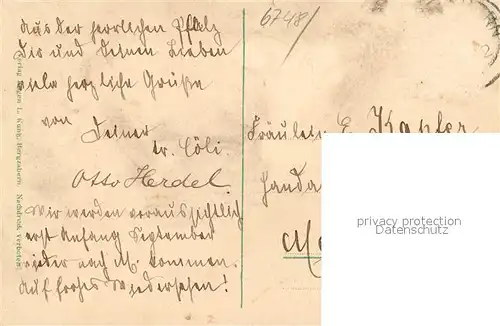 6748/
Aus der herrlichen Pfalz
Dir und Deinen Lieben
viele herzliche Grüße
von
Deiner
tr. Cöli.
Otto Herdel.
Wir werden voraussichtlich
erst Anfang September
wieder nach M. kommen.
Auf frohes Wiedersehen!
Verlag L. Kung, Bergzabern. Nachdruck verboten.
Fräulein E. Kapfer
privacy protection
Datenschutz